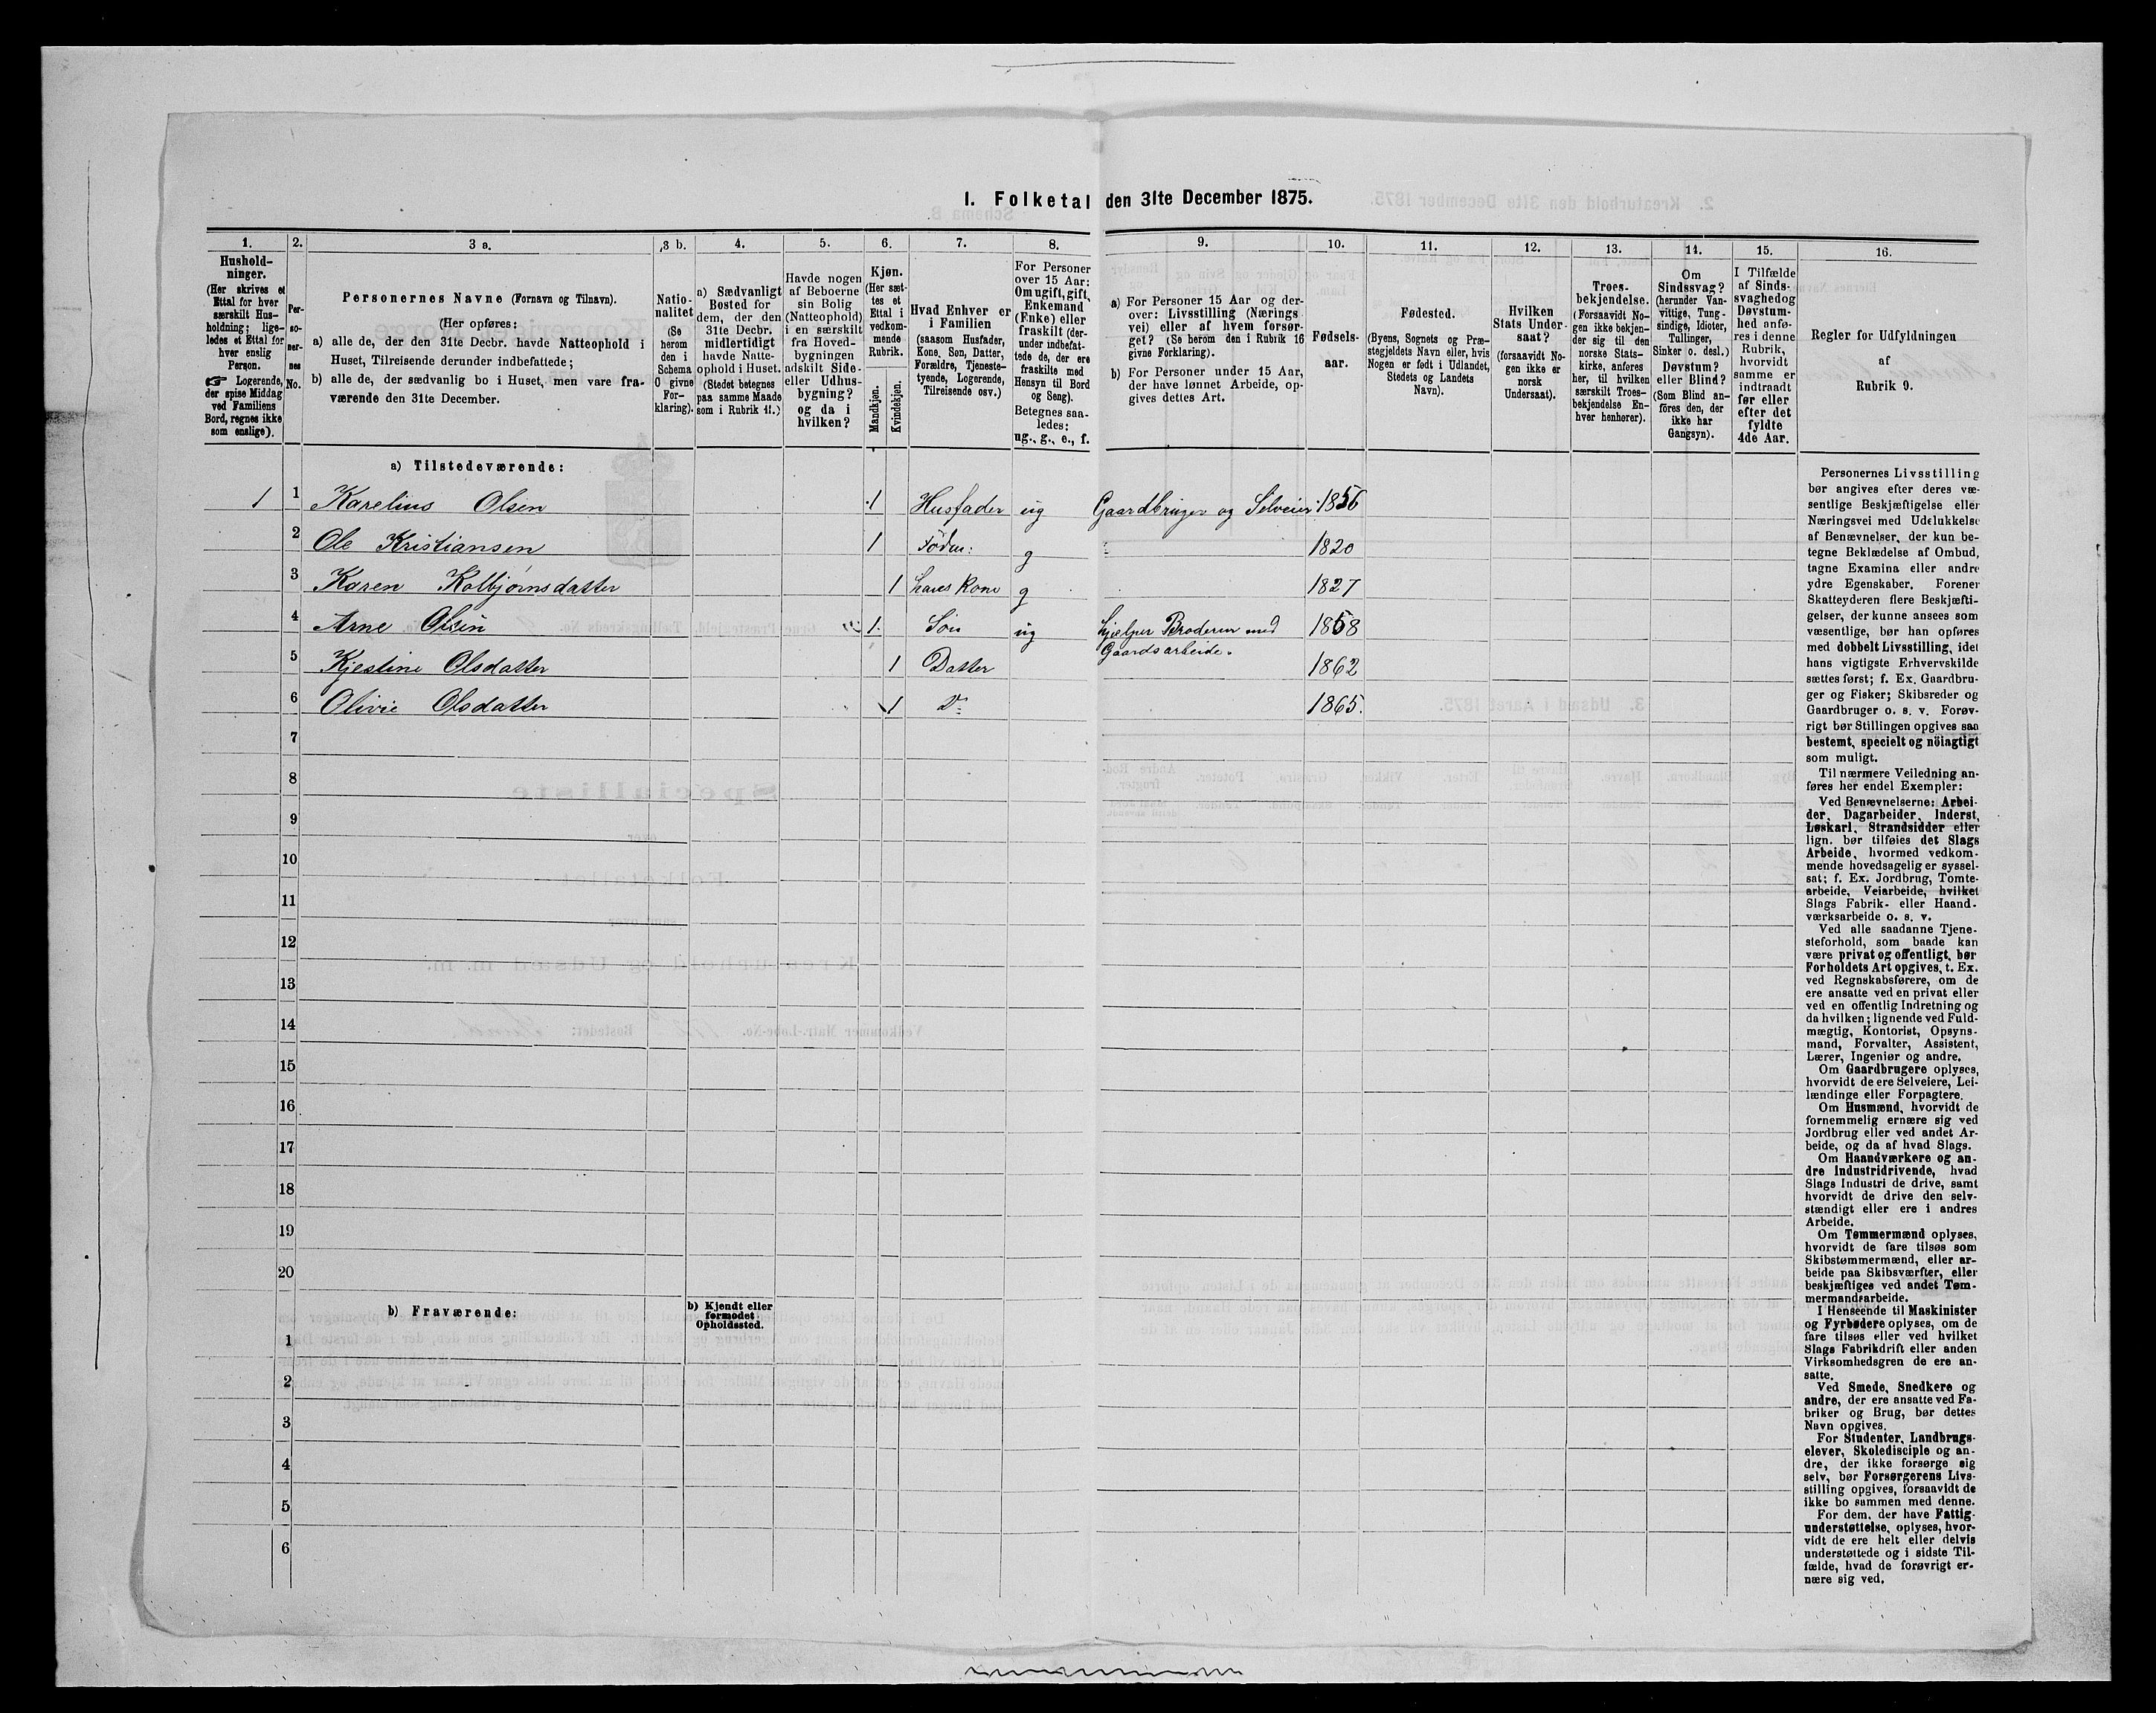 1. Folketal den 31te December 1875.
1.
Hushold-
ninger.
(Her skrives et
Ettal for hver
særskilt Hus-
holdning; lige-
ledes et Ettal for
hver enslig
Person.
☞ Logerende,
der spise Middag
ved Familiens
Bord, regnes ikke
som enslige).
2.
Per-
so-
ner-
nes
No.
3 a.
Personernes Navne (Fornavn og Tilnavn).
(Her opføres:
a) alle de, der den 31te Decbr. havde Natteophold i
Huset, Tilreisende derunder indbefattede;
b) alle de, der sædvanlig bo i Huset, men vare fra-
værende den 31te December.
3 b.
Natio-
nalitet
(Se
herom
den i
Schema
O givne
For-
klaring).
4.
a) Sædvanligt
Bosted for
dem, der den
31te Decbr.
midlertidigt
havde Natte-
ophold i Huset.
(Stedet betegnes
paa samme Maade
som i Rubrik 11.)
5.
Havde nogen
af Beboerne
sin Bolig
(Natteophold)
i en særskilt
fra Hoved-
bygningen
adskilt Side-
eller Udhus-
bygning?
og da i
hvilken?
6.
Kjøn.
(Her sæt-
tes et
Ettal i
vedkom-
mende
Rubrik.
Mandkjøn.
Kvindekjøn.
7.
Hvad Enhver er
i Familien
(saasom Husfader,
Kone, Søn, Datter,
Forældre, Tjeneste-
tyende, Logerende,
Tilreisende osv.)
8.
For Personer
over 15 Aar:
Om ugift, gift,
Enkemand
(Enke) eller
fraskilt (der-
under indbefat-
tede de, der ere
fraskilte med
Hensyn til Bord
og Seng).
Betegnes saa-
ledes:
ug., g., e., f.
9.
a) For Personer 15 Aar og der-
over: Livsstilling (Nærings
vei) eller af hvem forsør-
get? (Se herom den i Rubrik 16
givne Forklaring).
b) For Personer under 15 Aar,
der have lønnet Arbeide, op-
gives dettes Art.
10.
Fødsels-
aar.
11.
Fødested.
(Byens, Sognets og Præ-
stegjeldets Navn eller, hvis
Nogen er født i Udlandet,
Stedets og Landets
Navn).
12.
Hvilken
Stats Under-
saat?
(forsaavidt No-
gen ikke er
norsk
Undersaat).
13.
Troes-
bekjendelse.
(Forsaavidt No-
gen ikke bekjen-
der sig til den
norske Stats-
kirke, anføres
her, til hvilken
særskilt Troes-
bekjendelse En-
hver henhører).
14.
Om
Sindssvag?
(herunder Van-
vittige, Tung-
sindige, Idioter,
Tullinger,
Sinker o. desl.)
Døvstum?
eller Blind?
(Som Blind an-
føres den, der
ikke har
Gangsyn).
15.
I Tilfælde
af Sinds-
svaghed og
Døvstum-
hed anfø-
res i denne
Rubrik,
hvorvidt
samme er
indtraadt
før eller
efter det
fyldte
4de Aar.
16.
Regler for Udfyldningen
af
Rubrik 9.
a) Tilstedeværende:
1 1 Karelius Olsen 1 Husfader ug Gaardbruger og Selveier 1856
2 Ole Kristiansen 1 g 1820
3 Karen Kolbjørnsdatter 1 hans Kone g 1827
4 Arne Olsen 1 Søn ug hjælper Broderen med 1858
Gaardsarbeide.
5 Kjestine Olsdatter 1 Datter 1862
6 Olivie Olsdatter 1 D: 1865.
7
8
9
10
11
12
13
14
15
16
17
18
19
20
b) Fraværende:
b) Kjendt eller
formodet
Opholdssted.
1
2
3
4
5
6
Personernes Livsstilling
bør angives efter deres væ-
sentlige Beskjæftigelse eller
Næringsvei med Udelukkelse
af Benævnelser, der kun be-
tegne Beklædelse af Ombud,
tagne Examina eller andre
ydre Egenskaber. Forener
Skatteyderen flere Beskjæfti-
gelser, der kunne ansees som
væsentlige, bør han opføres
med dobbelt Livsstilling, idet
hans vigtigste Erhvervskilde
sættes først; f. Ex. Gaardbru-
ger og Fisker; Skibsreder og
Gaardbruger o. s. v. Forøv-
rigt bør Stillingen opgives saa
bestemt, specielt og nöiagtigt
som muligt.
Til nærmere Veiledning an-
føres her endel Exempler:
Ved Benævnelserne: Arbei-
der, Dagarbeider, Inderst,
Løskarl, Strandsidder eller
lign. bør tilføies det Slags
Arbeide, hvormed vedkom-
mende hovedsagelig er syssel-
sat; f. Ex. Jordbrug, Tomte-
arbeide, Veiarbeide, hvilket
Slags Fabrik- eller Haand-
værksarbeide o. s. v.
Ved alle saadanne Tjene-
steforhold, som baade kan
være privat og offentligt, bør
Forholdets Art opgives, t. Ex.
ved Regnskabsførere, om de
ere ansatte ved en privat eller
ved en offentlig Indretning og
da hvilken; lignende ved Fuld-
mægtig, Kontorist, Opsyns-
mand, Forvalter, Assistent,
Lærer, Ingeniør og andre.
Om Gaardbrugere oplyses,
hvorvidt de ere Selveiere, Lei-
lændinge eller Forpagtere.
Om Husmænd, hvorvidt de
fornemmelig ernære sig ved
Jordbrug eller ved andet Ar-
beide, og da af hvad Slags.
Om Haandværkere og an-
dre Industridrivende, hvad
Slags Industri de drive, samt
hvorvidt de drive den selv-
stændigt eller ere i andres
Arbeide.
Om Tømmermænd oplyses,
hvorvidt de fare tilsøs som
Skibstømmermænd, eller ar-
beide paa Skibsværfter, eller
beskjæftiges ved andet Tøm-
mermandsarbeide.
I Henseende til Maskinister
og Fyrbødere oplyses, om de
fare tilsøs eller ved hvilket
Slags Fabrikdrift eller anden
Virksomhedsgren de ere an-
satte.
Ved Smede, Snedkere og
andre, der ere ansatte ved Fa-
briker og Brug, bør dettes
Navn opgives.
For Studenter, Landbrugs-
elever, Skoledisciple og an-
dre, der ikke forsørge sig
selv, bør Forsørgerens Livs-
stilling opgives, forsaavidt de
ikke bo sammen med denne.
For dem, der have Fattig-
understøttelse, oplyses, hvor-
vidt de ere helt eller delvis
understøttede og i sidste Til-
fælde, hvad de forøvrigt er-
nære sig ved.